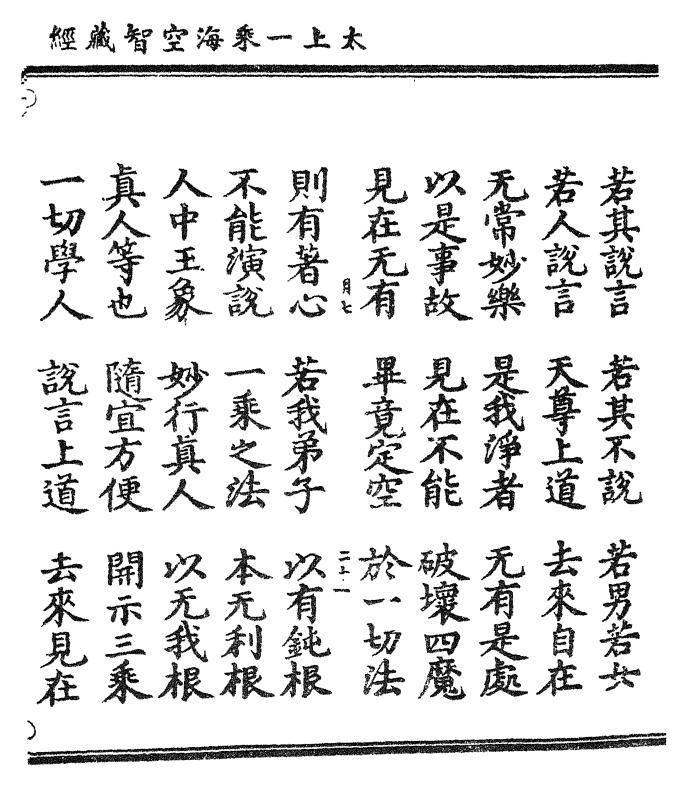 太上一乘海空智藏經
若其說言 若其不說 若男若女
若人說言 天尊上道 去來自在
无常妙樂 是我淨者 无有是處
以是事故 見在不能 破壞四魔
見在无有 畢竟定空 於一切法
月七 二十一
則有著心 若我弟子 以有鈍根
不能演說 一乘之法 本无利根
人中王象 妙行真人 以无我根
真人等也 隨宜方便 開示三乘
一切學人 說言上道 去來見在